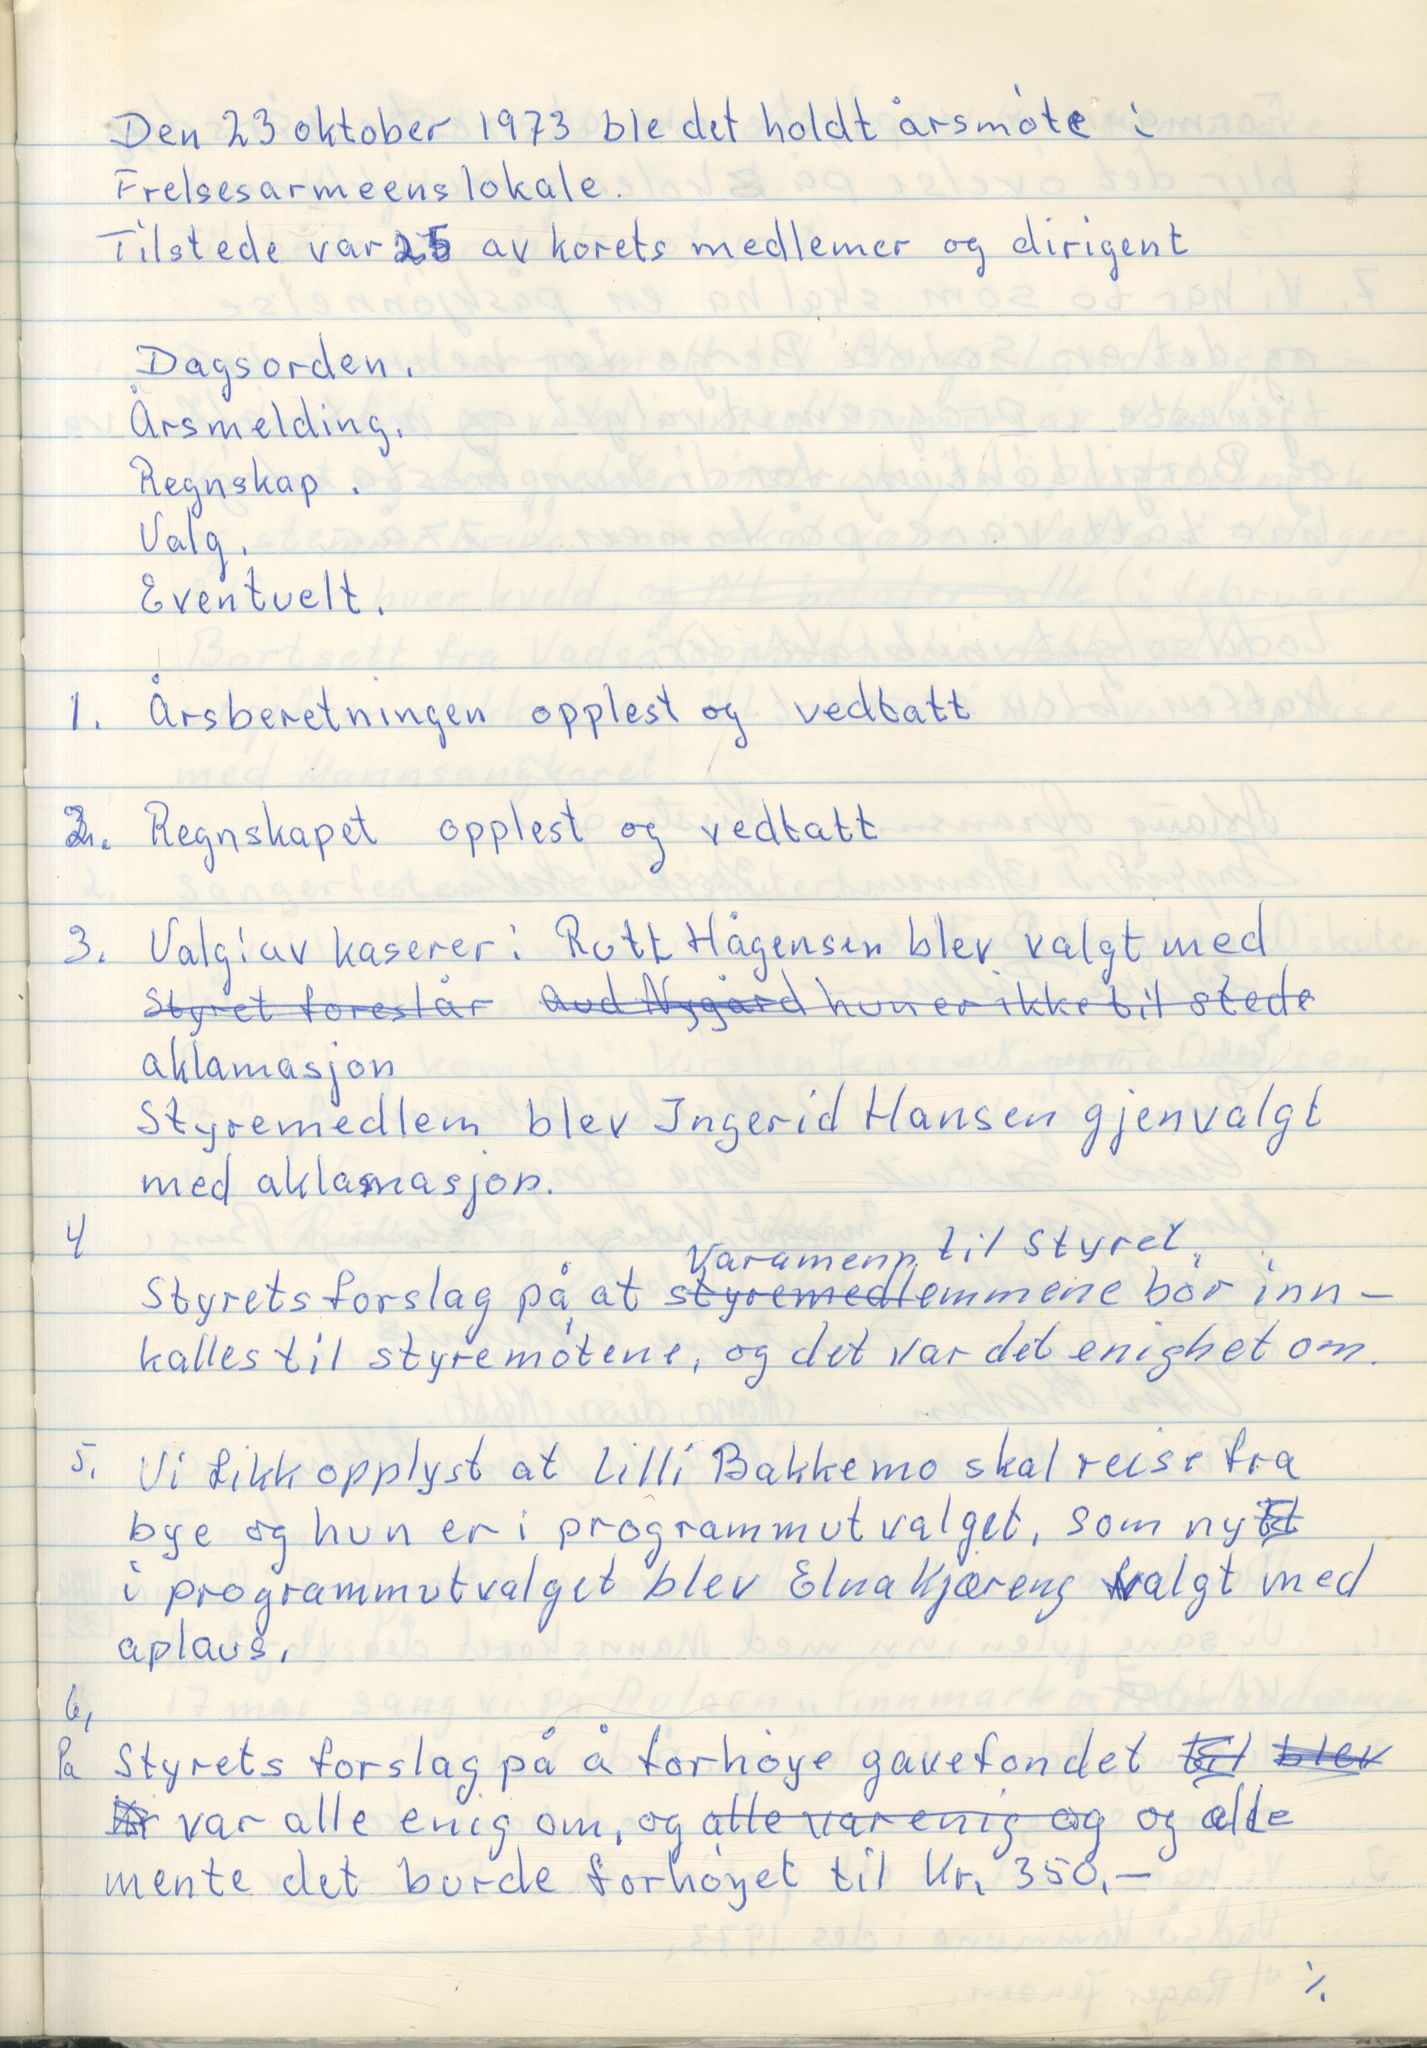 Den 23 oktober 1973 ble det holdt årsmöte i
Frelsesarmeens lokale.
Tilstede var 25 av korets medlemer og dirigent
Dagsorden.
Årsmelding.
Regnskap.
Valg.
Eventuelt.
1. Årsberetningen opplest og vedtatt
2. Regnskapet opplest og vedtatt
3. Valg: av kaserer: Rutt Hågensen blev valgt med
Styret foreslår Aud Nygård hun er ikke til stede
aklamasjon
Styremedlem blev Ingerid Hansen gjenvalgt
med aklamasjon.
4
Varamenn til Styret,
Styrets forslag på, at styremedlemmene bör inn-
kalles til styremötene, og det var det enighet om.
5. Vi fikk opplyst at Lilli Bakkemo skal reise fra
bye og hun er i programmutvalget, som nytt
i programmutvalget blev Elna Kjæreng valgt med
aplaus.
6,
Pa Styrets forslag på å forhöye gavefondet til blev
var alle enig om, og alle var enig og og alle
mente det burde forhöyet til Kr. 350,-
%